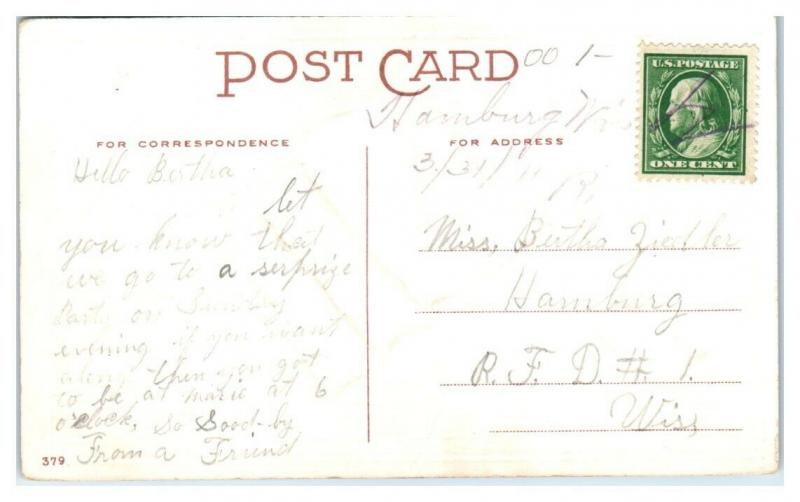 POST CARD
00 1-
Hamburg Wis
FOR CORRESPONDENCE
FOR ADDRESS
3/31/11
R.
U.S. POSTAGE
ONE CENT
Hello Bertha
let
you know that
we go to a serprize
Party on Sunday
evening if you want
along then you got
to be at marie at 6
o'clock, So Good-by
From a Friend
Miss, Bertha Ziedler
Hamburg
R. F. D. # 1.
Wis,
379